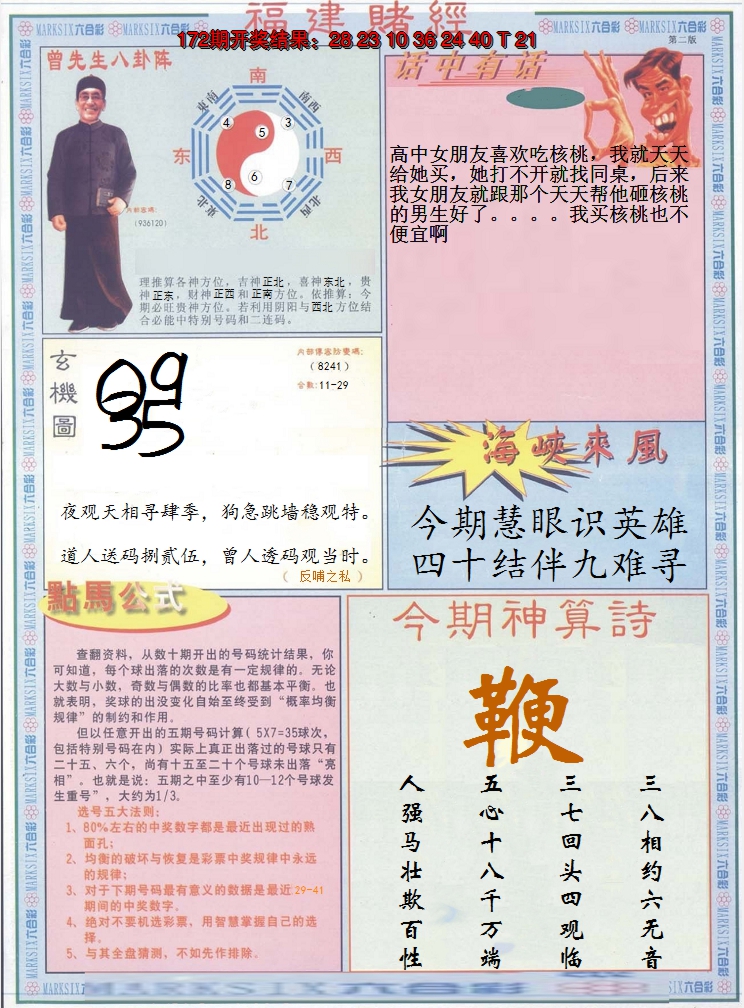 福建賭經
172期开奖结果：28 23 10 36 24 40 T 21
第二版
MARKSIX六合彩
曾先生八卦阵
南
东南
南西
东
西
4
5
3
8
6
7
東北
北西
北
内部密碼:
(936120)
理推算各神方位，吉神正北，喜神东北，贵
神正东，财神正西和正南方位。依推算：今
期必旺贵神方位。若利用阴阳与西北方位结
合必能中特别号码和二连码。
话中有话
高中女朋友喜欢吃核桃，我就天天
给她买，她打不开就找同桌，后来
我女朋友就跟那个天天帮他砸核桃
的男生好了。。。。我买核桃也不
便宜啊
玄機圖
09
35
（8241）
合数:11-29
夜观天相寻肆季，狗急跳墙稳观特。
道人送码捌贰伍，曾人透码观当时。
（ 反哺之私 ）
海峡來風
今期慧眼识英雄
四十结伴九难寻
點馬公式
查翻资料，从数十期开出的号码统计结果，你
可知道，每个球出落的次数是有一定规律的。无论
大数与小数，奇数与偶数的比率也都基本平衡。也
就表明，奖球的出没变化自始至终受到“概率均衡
规律”的制约和作用。
但以任意开出的五期号码计算( 5X7=35球次，
包括特别号码在内）实际上真正出落过的号球只有
二十五、六个，尚有十五至二十个号球未出落“亮
相”。也就是说：五期之中至少有10—12个号球发
生重号”，大约为1/3。
选号五大法则：
1、80%左右的中奖数字都是最近出现过的熟
面孔；
2、均衡的破坏与恢复是彩票中奖规律中永远
的规律；
3、对于下期号码最有意义的数据是最近29-41
期间的中奖数字。
4、绝对不要机选彩票，用智慧掌握自己的选
择。
5、与其全盘猜测，不如先作排除。
今期神算詩
鞭
三八相约六无音
三七回头四观临
五心十八千万端
人强马壮欺百性